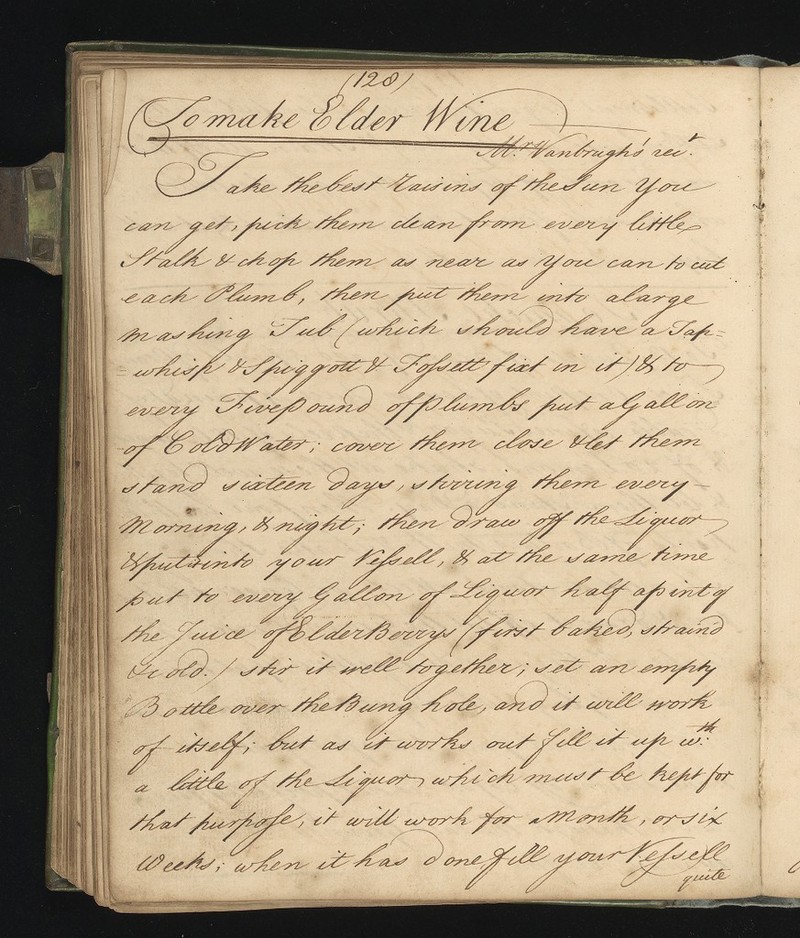 (128)
To make Elder Wine
Mr. Vanbrugh's rect.
Take the best Raisins of the Sun You
can get, pick them clean from every little
Stalk & chop them as near as you can to cut
each Plumb, then put them into a large
mashing Tub (which should have a Tap=
=whisp & Spiggott & Fossett fixt in it) & to
every Five Pound of Plumbs put a Gallon
of Cold Water; cover them close & let them
stand sixteen days, stirring them every
Morning, & night; then draw off the Liquor
& put it into your Vessell, & at the same time
put to every Gallon of Liquor half a pint of
the Juice of Elder Berrys (first baked, straind
& cold.) stir it well together; set an empty
Bottle over the Bung hole, and it will work
of itself; but as it works out fill it up wth:
a little of the Liquor which must be kept for
that purpose, it will work for a Month, or six
Weeks; when it has done fill your Vessell
quite